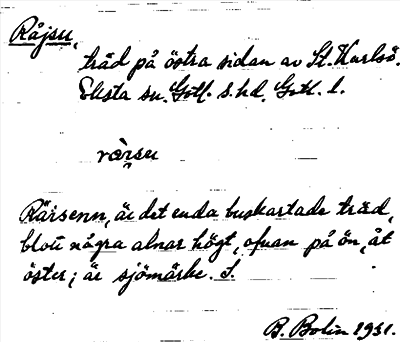 Råjsu,
träd på östra sidan av St. Karlsö.
Eksta sn. Gotl. s. hd. Gotl. l.
ràrsu
Rärsenn, är det enda buskartade träd,
blott några alnar högt, ofvan på ön, åt
öster; är sjömärke. S.
B. Bolin 1931.